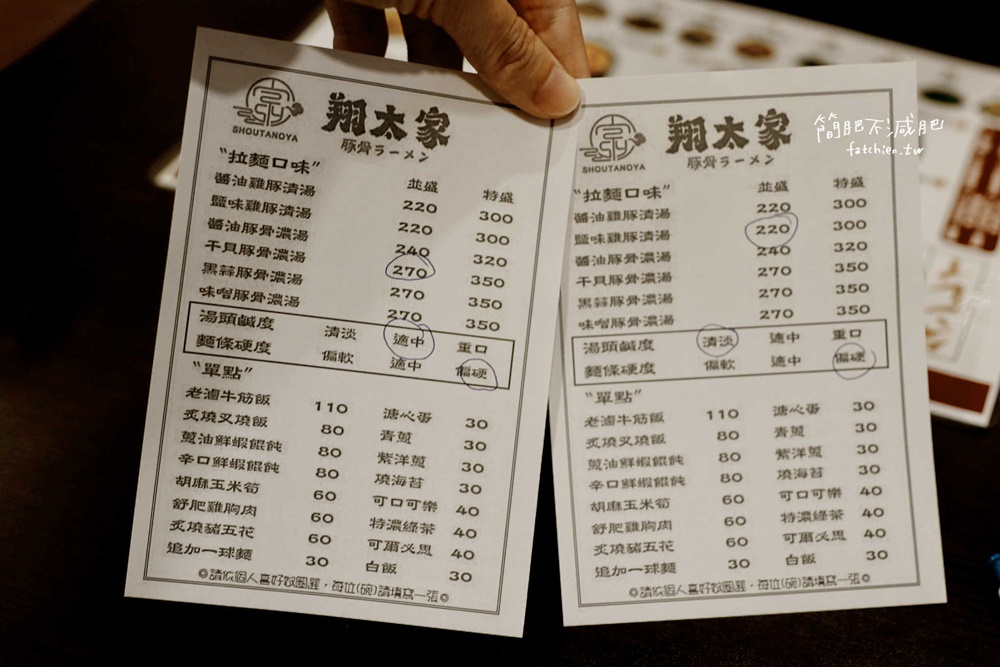 SHOUTANOYA
翔太家
豚骨ラーメン
"拉麵口味" 並盛 特盛
醬油雞豚清湯 220 300
鹽味雞豚清湯 220 300
醬油豚骨濃湯 240 320
干貝豚骨濃湯 270 350
黑蒜豚骨濃湯 270 350
味噌豚骨濃湯 270 350
湯頭鹹度 清淡 適中 重口
麵條硬度 偏軟 適中 偏硬
"單點"
老滷牛筋飯 110 溏心蛋 30
炙燒叉燒飯 80 青蔥 30
蔥油鮮蝦餛飩 80 紫洋蔥 30
辛口鮮蝦餛飩 80 燒海苔 30
胡麻玉米筍 60 可口可樂 40
舒肥雞胸肉 60 特濃綠茶 40
炙燒豬五花 60 可爾必思 40
追加一球麵 30 白飯 30
◎請依個人喜好做圈選，每位(碗)請填寫一張◎
SHOUTANOYA
翔太家
豚骨ラーメン
"拉麵口味" 並盛 特盛
醬油雞豚清湯 220 300
鹽味雞豚清湯 220 300
醬油豚骨濃湯 240 320
干貝豚骨濃湯 270 350
黑蒜豚骨濃湯 270 350
味噌豚骨濃湯 270 350
湯頭鹹度 清淡 適中 重口
麵條硬度 偏軟 適中 偏硬
"單點"
老滷牛筋飯 110 溏心蛋 30
炙燒叉燒飯 80 青蔥 30
蔥油鮮蝦餛飩 80 紫洋蔥 30
辛口鮮蝦餛飩 80 燒海苔 30
胡麻玉米筍 60 可口可樂 40
舒肥雞胸肉 60 特濃綠茶 40
炙燒豬五花 60 可爾必思 40
追加一球麵 30 白飯 30
◎請依個人喜好做圈選，每位(碗)請填寫一張◎
簡肥不減肥
fatchien.tw